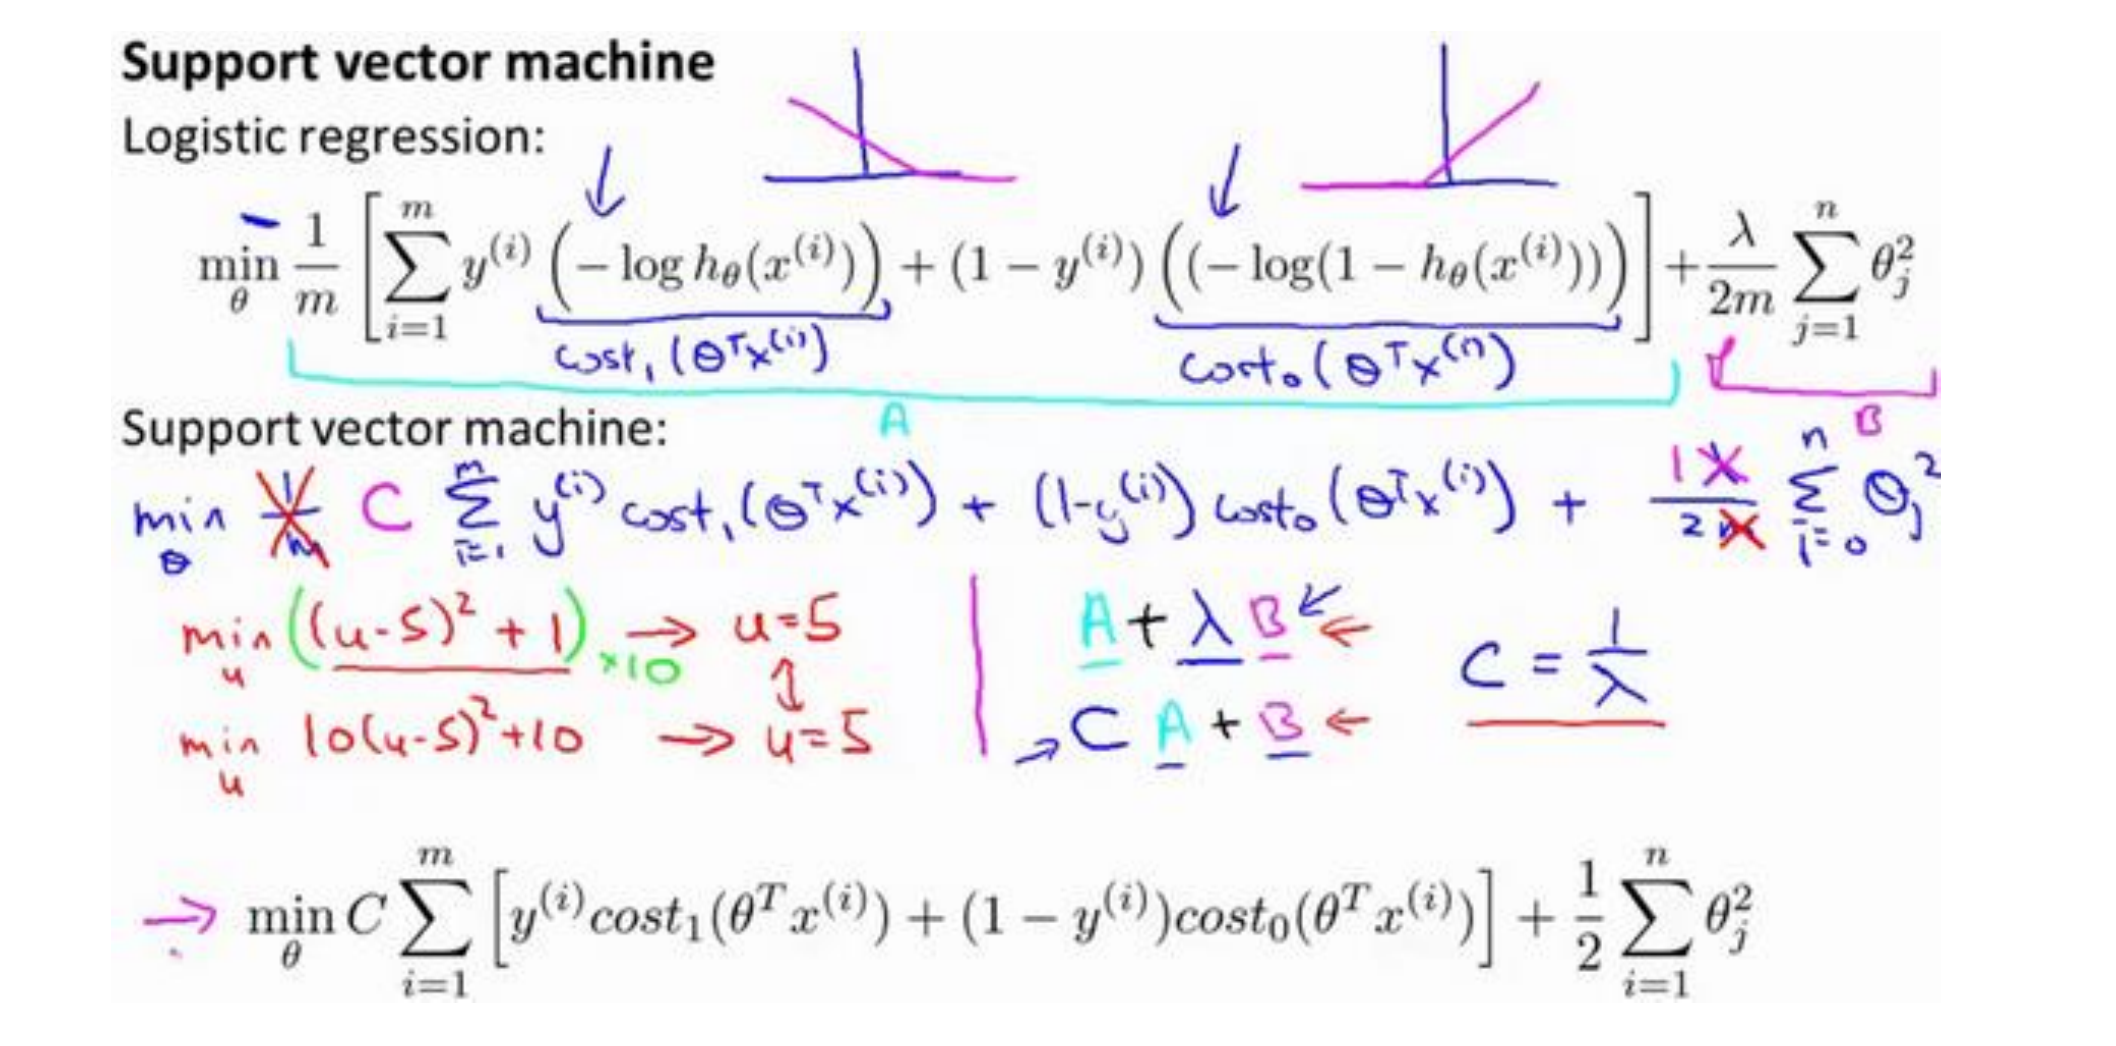 Support vector machine
Logistic regression:
min_θ 1/m [ ∑_{i=1}^{m} y^{(i)} (− log h_θ(x^{(i)})) + (1 − y^{(i)}) ((− log(1 − h_θ(x^{(i)}))) ] + λ/2m ∑_{j=1}^{n} θ_j^2
cost₁(θᵀx^{(i)}) cost₀(θᵀx^{(i)})
A B
Support vector machine:
min_θ 1/m C ∑_{i=1}^{m} y^{(i)} cost₁(θᵀx^{(i)}) + (1-y^{(i)}) cost₀(θᵀx^{(i)}) + 1 λ/2m ∑_{i=0}^{n} θ_j^2
min_u ((u-5)² + 1) ×10 → u=5 A + λ B ← C = 1/λ
min_u 10(u-5)²+10 → u=5 → C A + B ←
→ min_θ C ∑_{i=1}^{m} [ y^{(i)} cost₁(θ^T x^{(i)}) + (1 − y^{(i)})cost₀(θ^T x^{(i)}) ] + 1/2 ∑_{i=1}^{n} θ_j^2